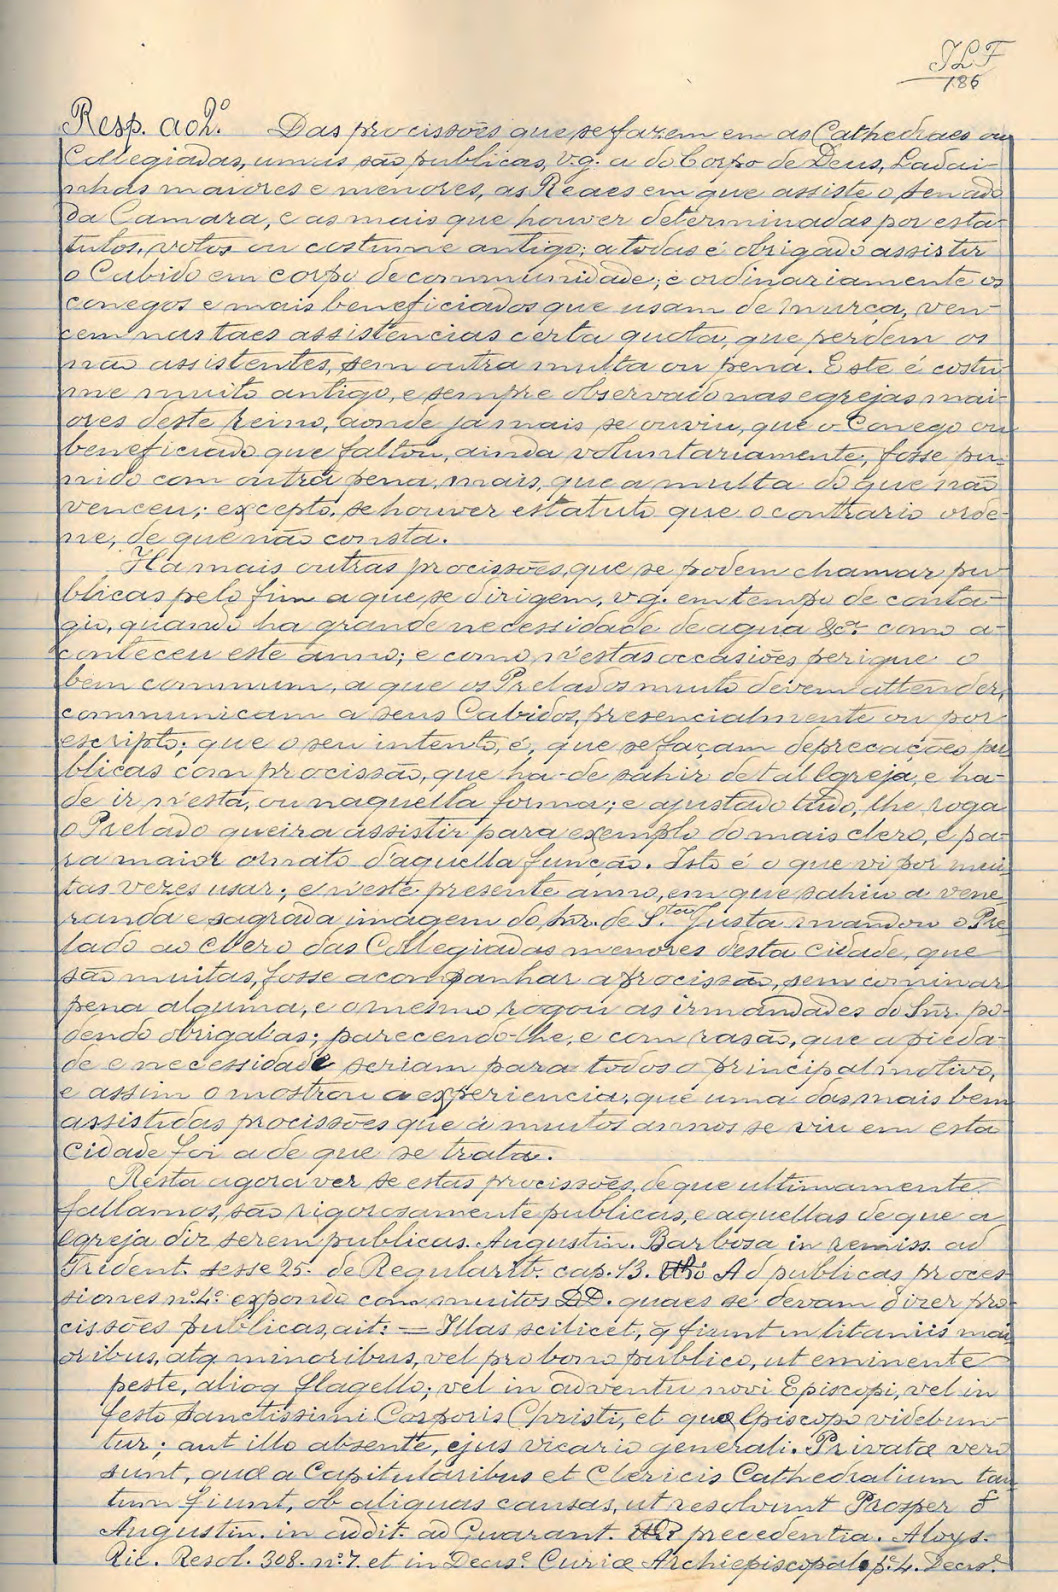 JLF
186
Resp. ao 2º. Das procissões que se fazem em as Cathedraes ou
Collegiadas, umas são publicas, v.g. a do Corpo de Deus, Ladai-
nhas maiores e menores, as Reaes em que assiste o Senado
da Camara, e as mais que houver determinadas por esta-
tutos, votos ou costume antigo; a todas é obrigado assistir
o Cabido em corpo de communidade; e ordinariamente os
conegos e mais beneficiados que usam de murça, ven-
cem nas taes assistencias certa quota, que perdem os
não assistentes, sem outra multa ou pena. Este é costu-
me muito antigo, e sempre observado nas egrejas mai-
ores deste reino, aonde jamais se ouviu, que o Conego ou
beneficiado que faltou, ainda voluntariamente, fosse pu-
nido com outra pena, mais, que a multa do que não
venceu; excepto, se houver estatuto que o contrario orde-
ne, de que não consta.
Ha mais outras procissões, que se podem chamar pu-
blicas pelo fim a que se dirigem, v.g. em tempo de conta-
gio, quando ha grande necessidade de agua &c.ª como a-
conteceu este anno; e como n'estas occasiões perigue o
bem commum, a que os Prelados muito devem attender,
communicam a seus Cabidos, presencialmente ou por
escripto; que o seu intento, é, que se façam deprecações pu
blicas com procissão, que ha-de sahir de tal Egreja, e ha-
de ir n'esta, ou naquella forma; e ajustado tudo, lhe roga
o Prelado queira assistir para exemplo do mais clero, e pa-
ra maior ornato d'aquella funcção. Isto é o que vi por mui-
tas vezes usar; e n'este presente anno, em que sahiu a vene-
randa e sagrada imagem do Snr. de S.ta Justa mandou o Pre
lado ao clero das Collegiadas menores desta cidade, que
são muitas, fosse acompanhar a procissão, sem cominar
pena alguma, e o mesmo rogou as irmandades do Snr. po-
dendo obrigal-as; parecendo-lhe, e com rasão, que a pieda-
de e necessidade seriam para todos o principal motivo,
e assim o mostrou a experiencia; que uma das mais bem
assistidas procissões que á muitos annos se viu em esta
cidade foi a de que se trata.
Resta agora ver se estas procissões, de que ultimamente
fallamos, são rigorosamente publicas, e aquellas de que a
Egreja diz serem publicas. Augustin. Barbosa in remiss. ad
Trident. sesse 25. de Regularib. cap. 13. Ad publicas proces-
siones nº 4º expondo com muitos DD. quaes se devam dizer pro-
cissões publicas, ait: = Illas scilicet, q̃ fiunt in litaniis mai
oribus, atq minoribus, vel pro bono publico, ut eminente
peste, alioq flagello; vel in adventu novi Episcopi, vel in
festo Sanctissimi Corporis Christi, et quæ Episcopo videbun-
tur; aut illo absente, ejus vicario generali. Privatæ vero
sunt, quæ a Capitularibus et Clericis Cathedralium tan
tum fiunt, ob aliquas causas, ut resolvunt Prosper &
Augustin. in addit. ad Quarant. precedentia. Aloys.
Ric. Resol. 308. nº 7. et in Decisº. Curiæ Archiepiscopal. pº 4. Decisº.